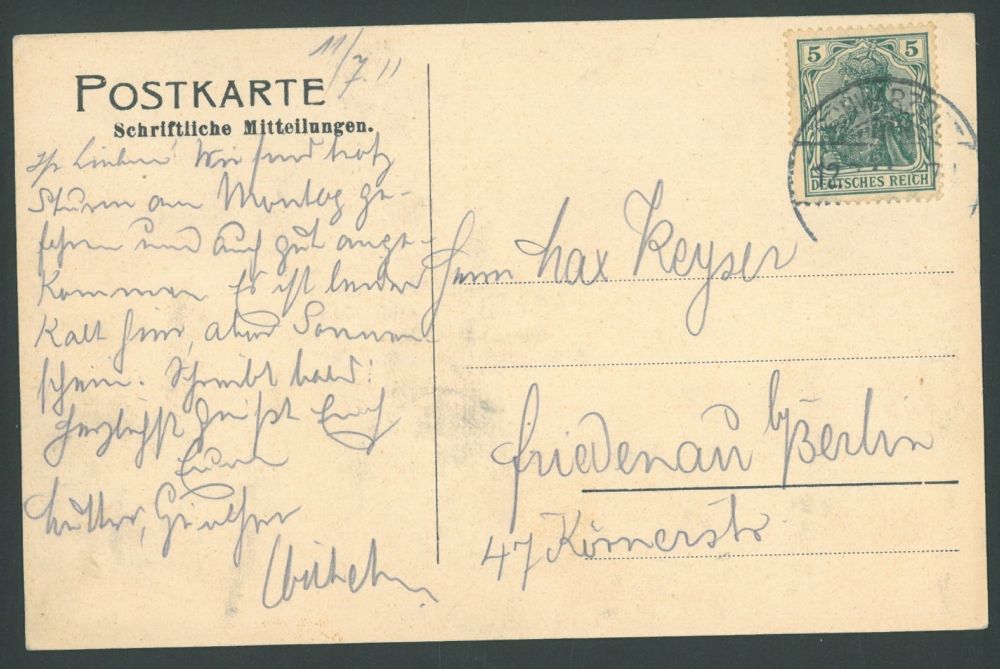 11/7.11
POSTKARTE
Schriftliche Mitteilungen.
Ihr Lieben! Wir sind trotz
Sturm am Montag ge-
fahren und auch gut ange-
kommen Es ist leider
Kalt hier, aber Sonnen
schein. Schreibt bald!
Herzlichst grüßt Euch
Eure
Mutter, Günther
5 5
DEUTSCHES REICH
12.7.11
Herrn Max Keyser
Friedenau b/Berlin
47 Körnerstr